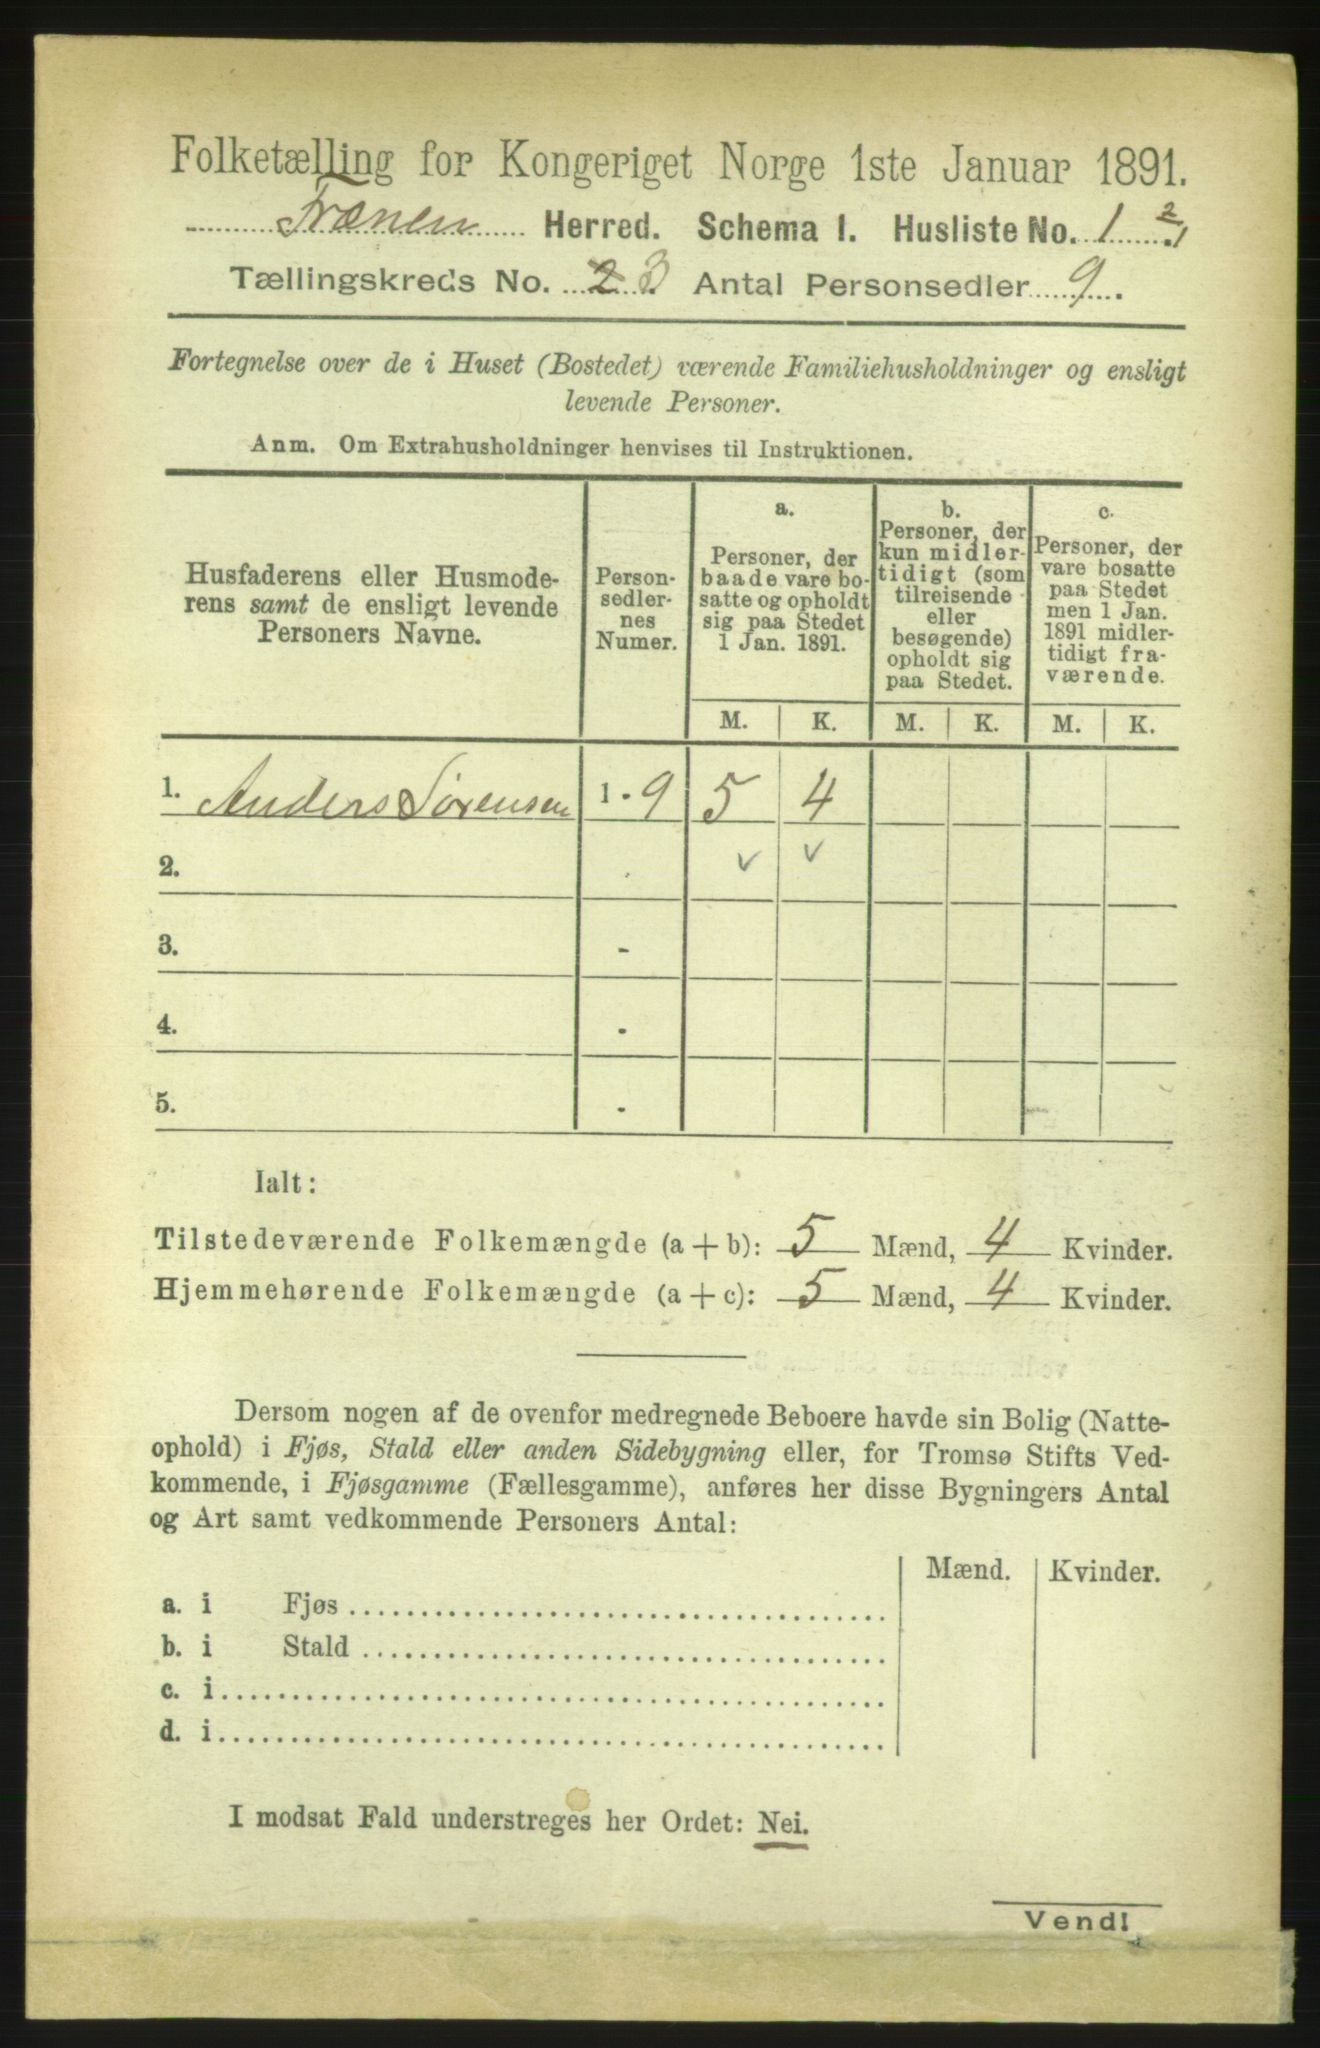 Folketælling for Kongeriget Norge 1ste Januar 1891.
Frænen Herred. Schema I. Husliste No. 1
Tællingskreds No. 2 3 Antal Personsedler 9.
Fortegnelse over de i Huset (Bostedet) værende Familiehusholdninger og ensligt
levende Personer.
Anm. Om Extrahusholdninger henvises til Instruktionen.
Husfaderens eller Husmode-
rens samt de ensligt levende
Personers Navne.
Person-
sedler-
nes
Numer.
a.
Personer, der
baade vare bo-
satte og opholdt
sig paa Stedet
1 Jan. 1891.
b.
Personer, der
kun midler-
tidigt (som
tilreisende
eller
besøgende)
opholdt sig
paa Stedet.
c.
Personer, der
vare bosatte
paa Stedet
men 1 Jan.
1891 midler-
tidigt fra-
værende.
M. K. M. K. M. K.
1. Anders Sørensen 1 - 9 5 4
2.
3. -
4. -
5. -
Ialt:
Tilstedeværende Folkemængde (a + b): 5 Mænd, 4 Kvinder.
Hjemmehørende Folkemængde (a + c): 5 Mænd, 4 Kvinder.
Dersom nogen af de ovenfor medregnede Beboere havde sin Bolig (Natte-
ophold) i Fjøs, Stald eller anden Sidebygning eller, for Tromsø Stifts Ved-
kommende, i Fjøsgamme (Fællesgamme), anføres her disse Bygningers Antal
og Art samt vedkommende Personers Antal:
Mænd. Kvinder.
a. i Fjøs
b. i Stald
c. i
d. i
I modsat Fald understreges her Ordet: Nei.
Vend!